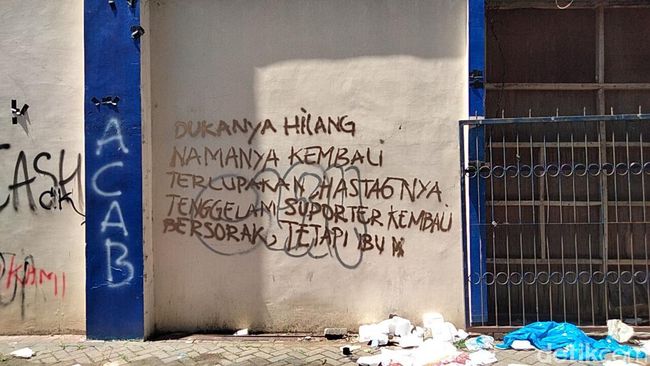 ACAB
DUKANYA HILANG
NAMANYA KEMBALI
TERLUPAKAN, HASTAG'NYA
TENGGELAM SUPORTER KEMBALI
BERSORAK, TETAPI IBU
CASH
KAMI
ACAB
detikcom